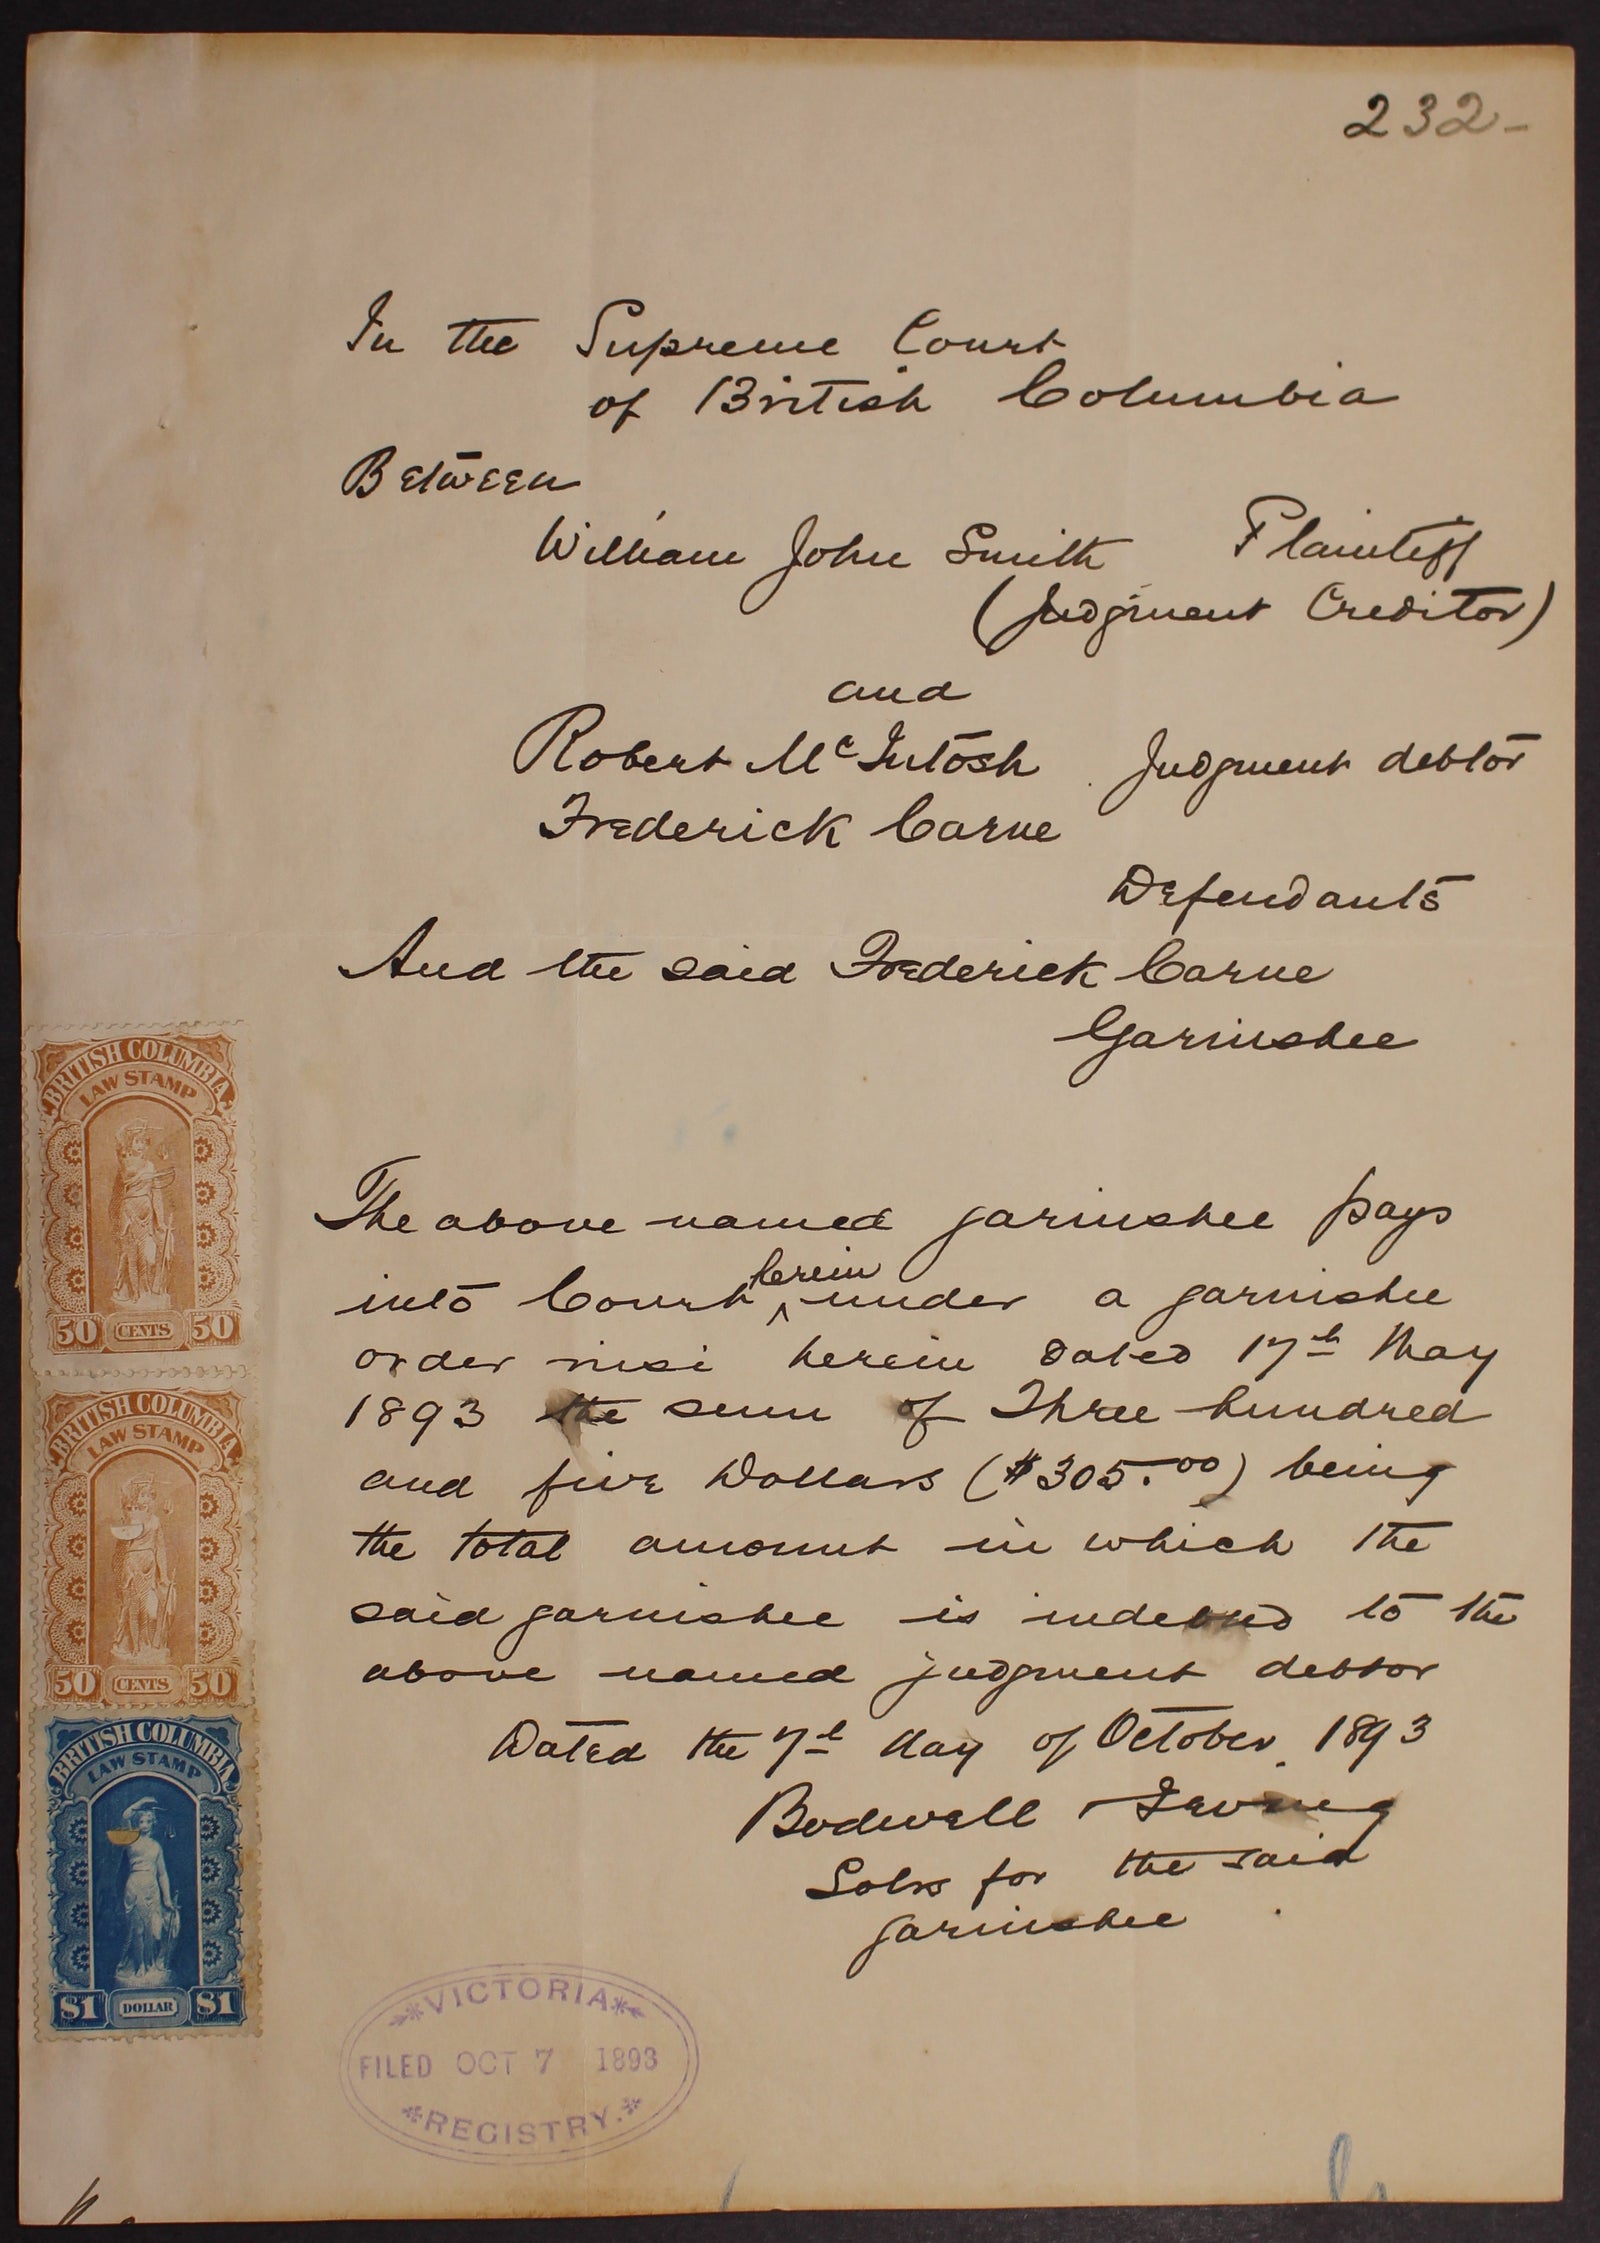 232-
In the Supreme Court
of British Columbia
Between
William John Smith Plaintiff
(Judgment Creditor)
and
Robert McIntosh Judgment debtor
Frederick Carne
Defendants
And the said Frederick Carne
Garnishee
The above named garnishee pays
into Court herein under a garnishee
order nisi herein dated 17th May
1893 the sum of Three hundred
and five Dollars ($305.00) being
the total amount in which the
said garnishee is indebted to the
above named judgment debtor
Dated the 7th day of October 1893
Bodwell & Irving
Solrs for the said
garnishee
BRITISH COLUMBIA
LAW STAMP
50 CENTS 50
BRITISH COLUMBIA
LAW STAMP
50 CENTS 50
BRITISH COLUMBIA
LAW STAMP
$1 DOLLAR $1
VICTORIA
FILED OCT 7 1893
REGISTRY.